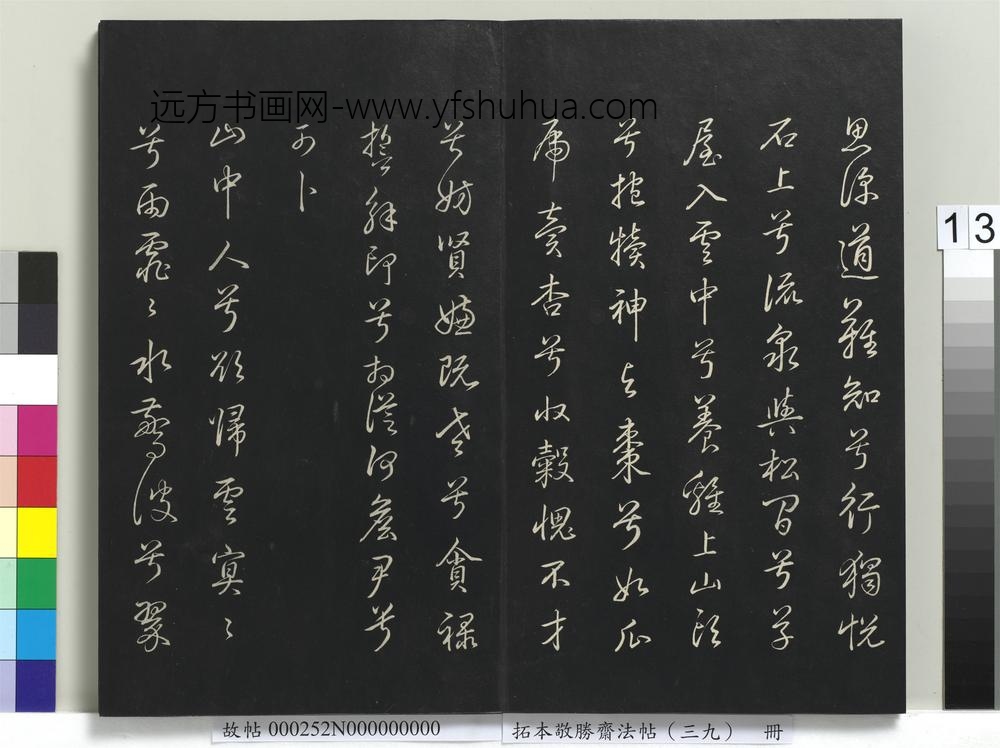 远方书画网-www.yfshuhua.com
思深道難知兮行獨悅
石上兮流泉與松間兮草
屋入雲中兮養雞上山頭
兮抱犢神與棗兮如瓜
虎賣杏兮收穀愧不才
兮妨賢嫌既老兮貪祿
誓解印兮相從何詹尹兮
可卜
山中人兮欲歸雲冥〻
兮雨霏〻水驚波兮翠
13
故帖 000252N000000000
拓本敬勝齋法帖（三九） 冊